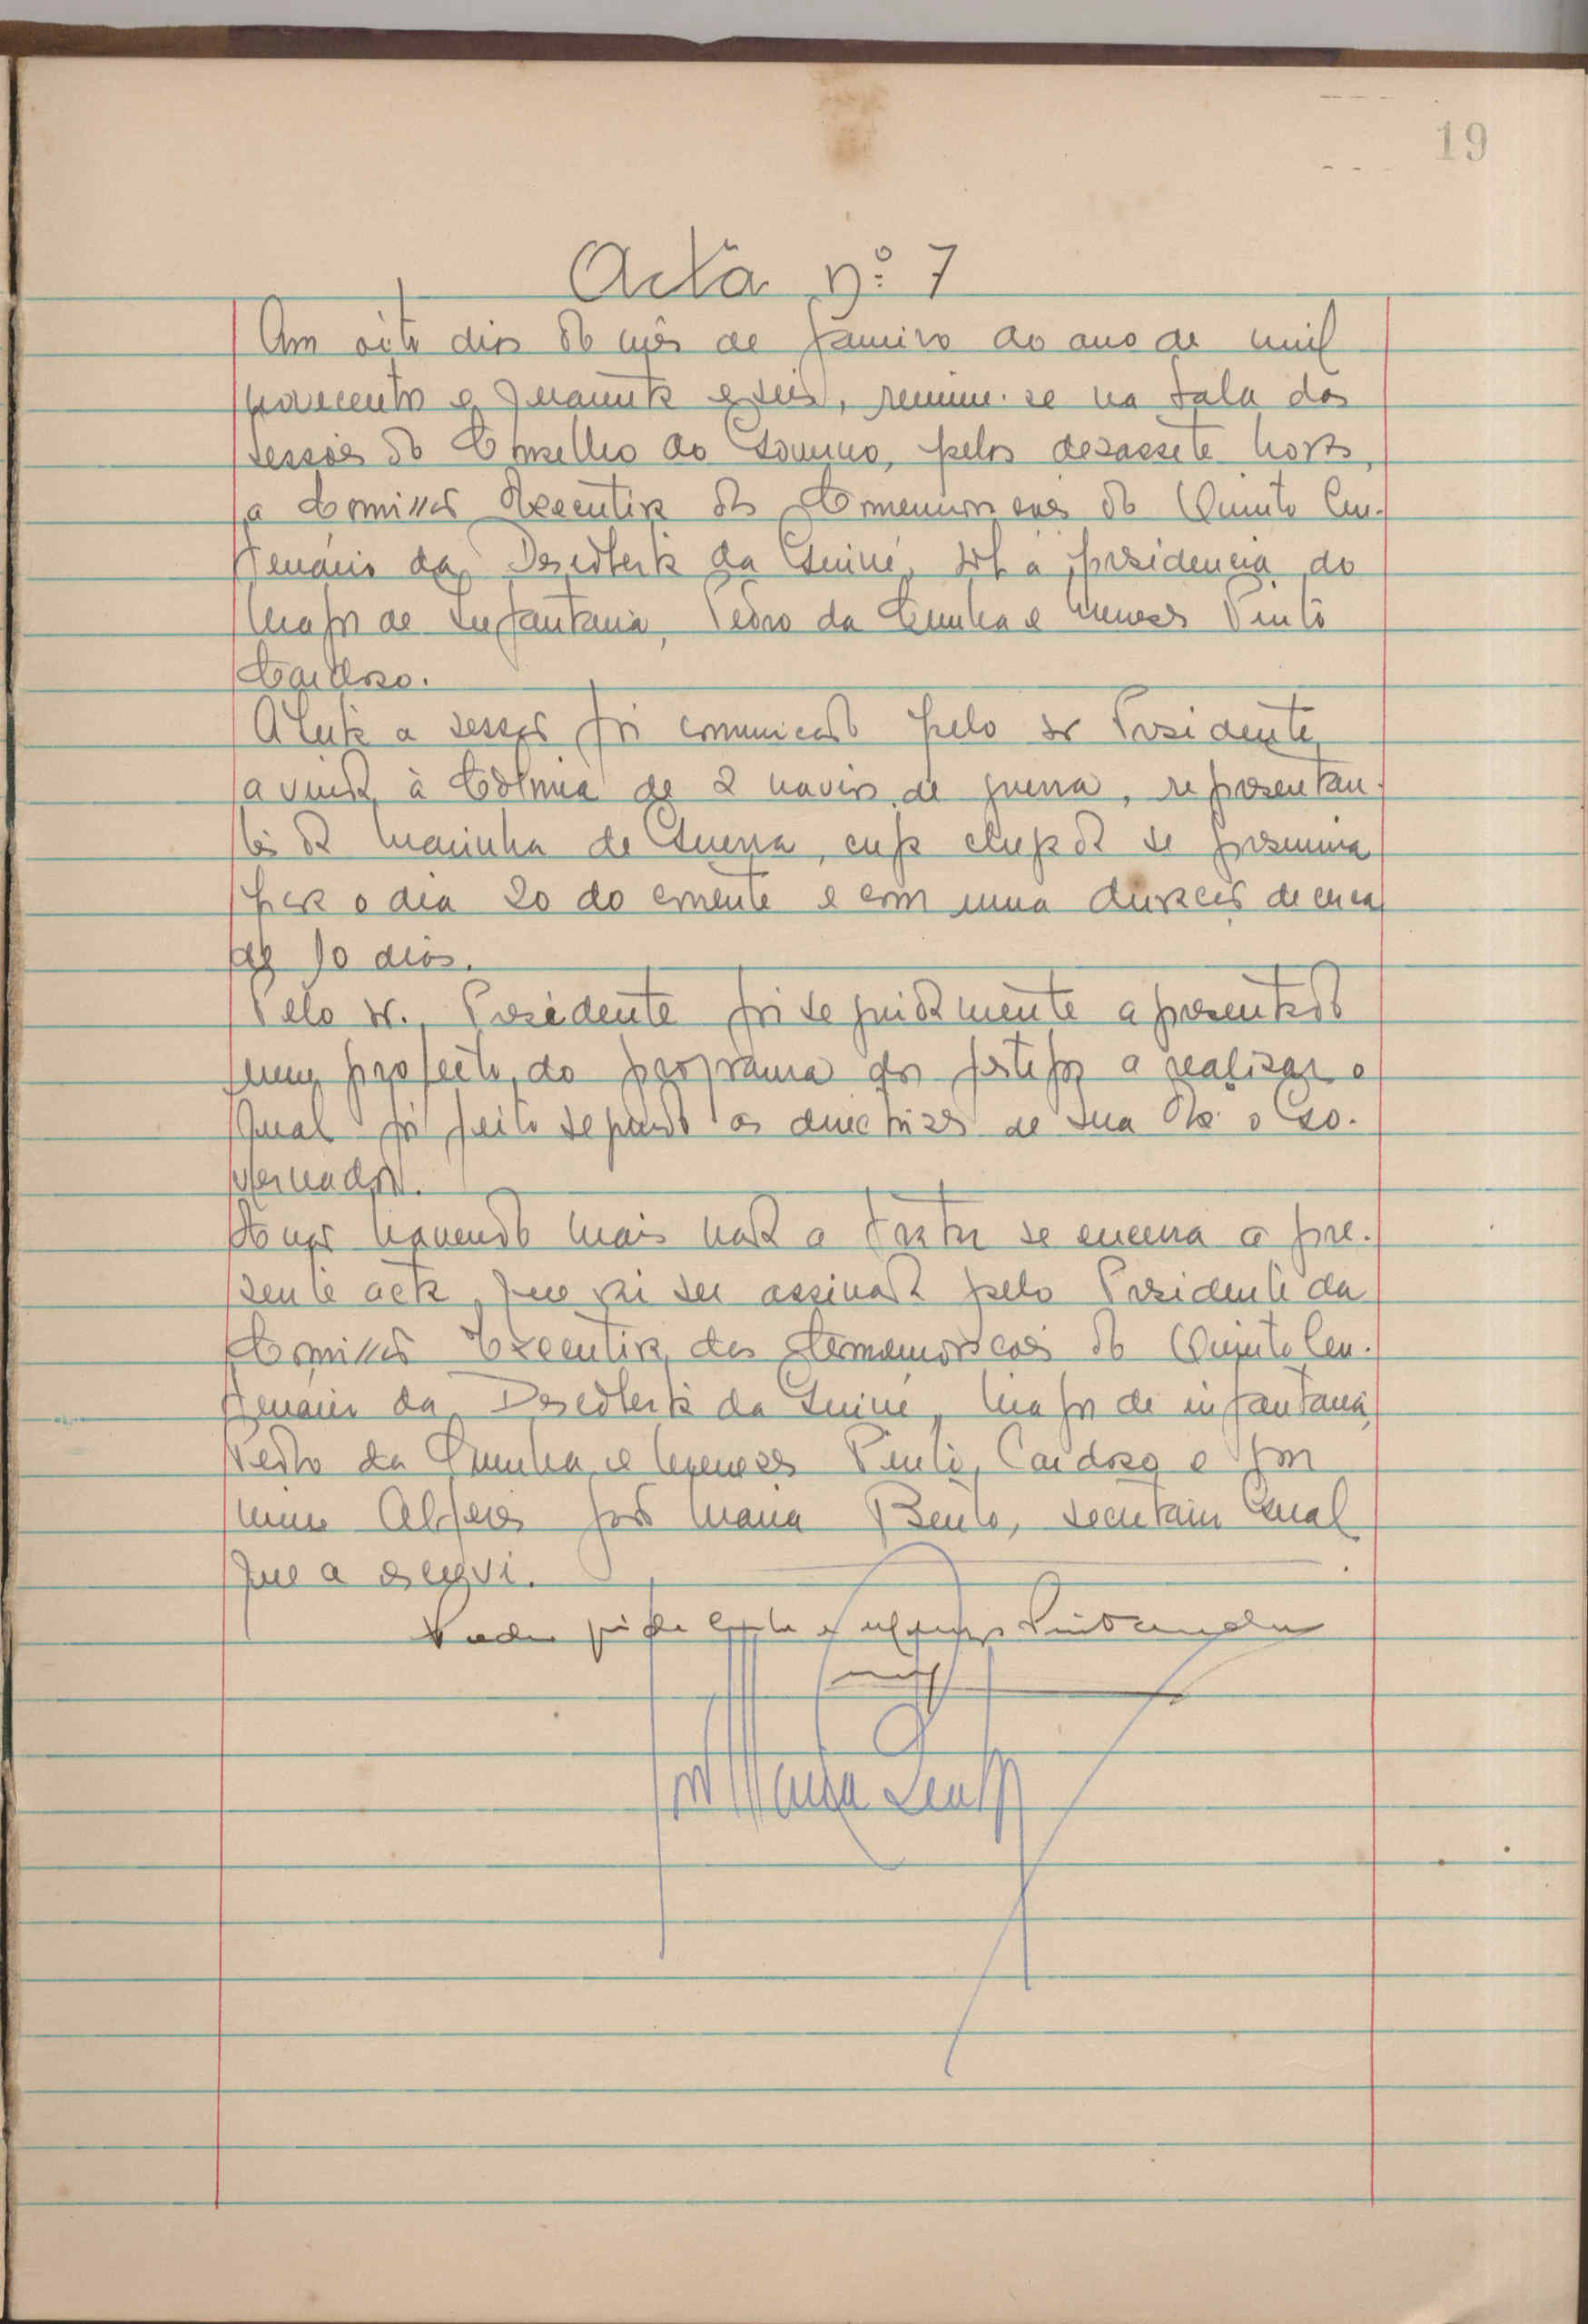 19
Acta nº 7
Aos oito dias do mês de Janeiro do ano de mil
novecentos e quarenta e seis, reuniu-se na sala das
sessões do Conselho do Governo, pelas dezassete horas,
a Comissão Executiva das Comemorações do Quinto Cen-
tenário da Descoberta da Guiné, sob a presidencia do
Major de Infantaria, Pedro da Cunha e Meneses Pinto
Cardoso.
Aberta a sessão foi comunicado pelo sr Presidente
a vinda à Colónia de 2 navios de guerra, representan-
tes da Marinha de Guerra, cuja chegada se presumia
para o dia 20 do corrente e com uma duração de cerca
de 10 dias.
Pelo sr. Presidente foi seguidamente apresentado
um projecto do programa dos festejos a realizar o
qual foi feito segundo as directrizes de Sua Exª o Go-
vernador.
E não havendo mais nada a tratar se encerra a pre-
sente acta, que vai ser assinada pelo Presidente da
Comissão Executiva das Comemorações do Quinto Cen-
tenário da Descoberta da Guiné, Major de infantaria,
Pedro da Cunha e Meneses Pinto Cardoso e por
mim Alferes José Maria Bento, secretário Geral
que a escrevi.
Pinto Cardoso
José Maria Bento